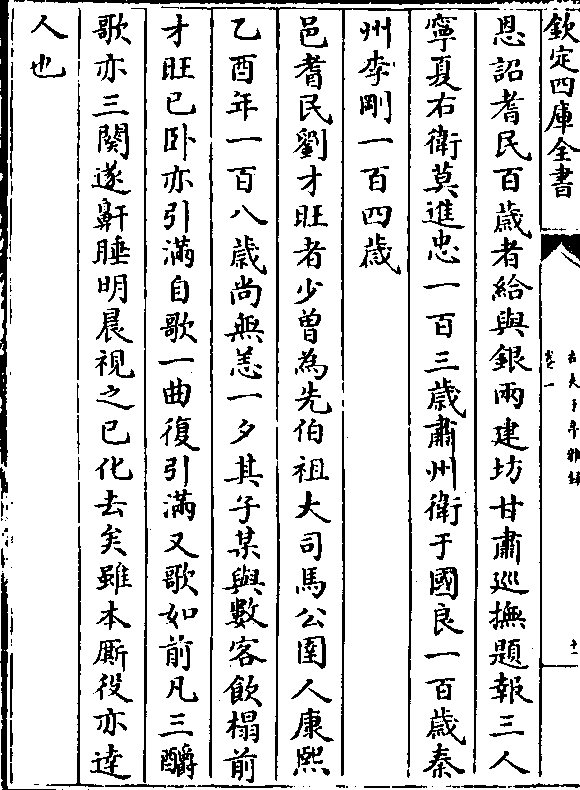 欽定四庫全書
卷一
恩詔耆民百歲者給與銀兩建坊甘肅巡撫題報三人
寧夏右衛莫進忠一百三歲肅州衛于國良一百歲秦
州李剛一百四歲
邑耆民劉才旺者少曾為先伯祖大司馬公圉人康熙
乙酉年一百八歲尚無恙一夕其子某與數客飲榻前
才旺已卧亦引滿自歌一曲復引滿又歌如前凡三釂
歌亦三闋遂鼾睡明晨視之已化去矣雖本厮役亦達
人也